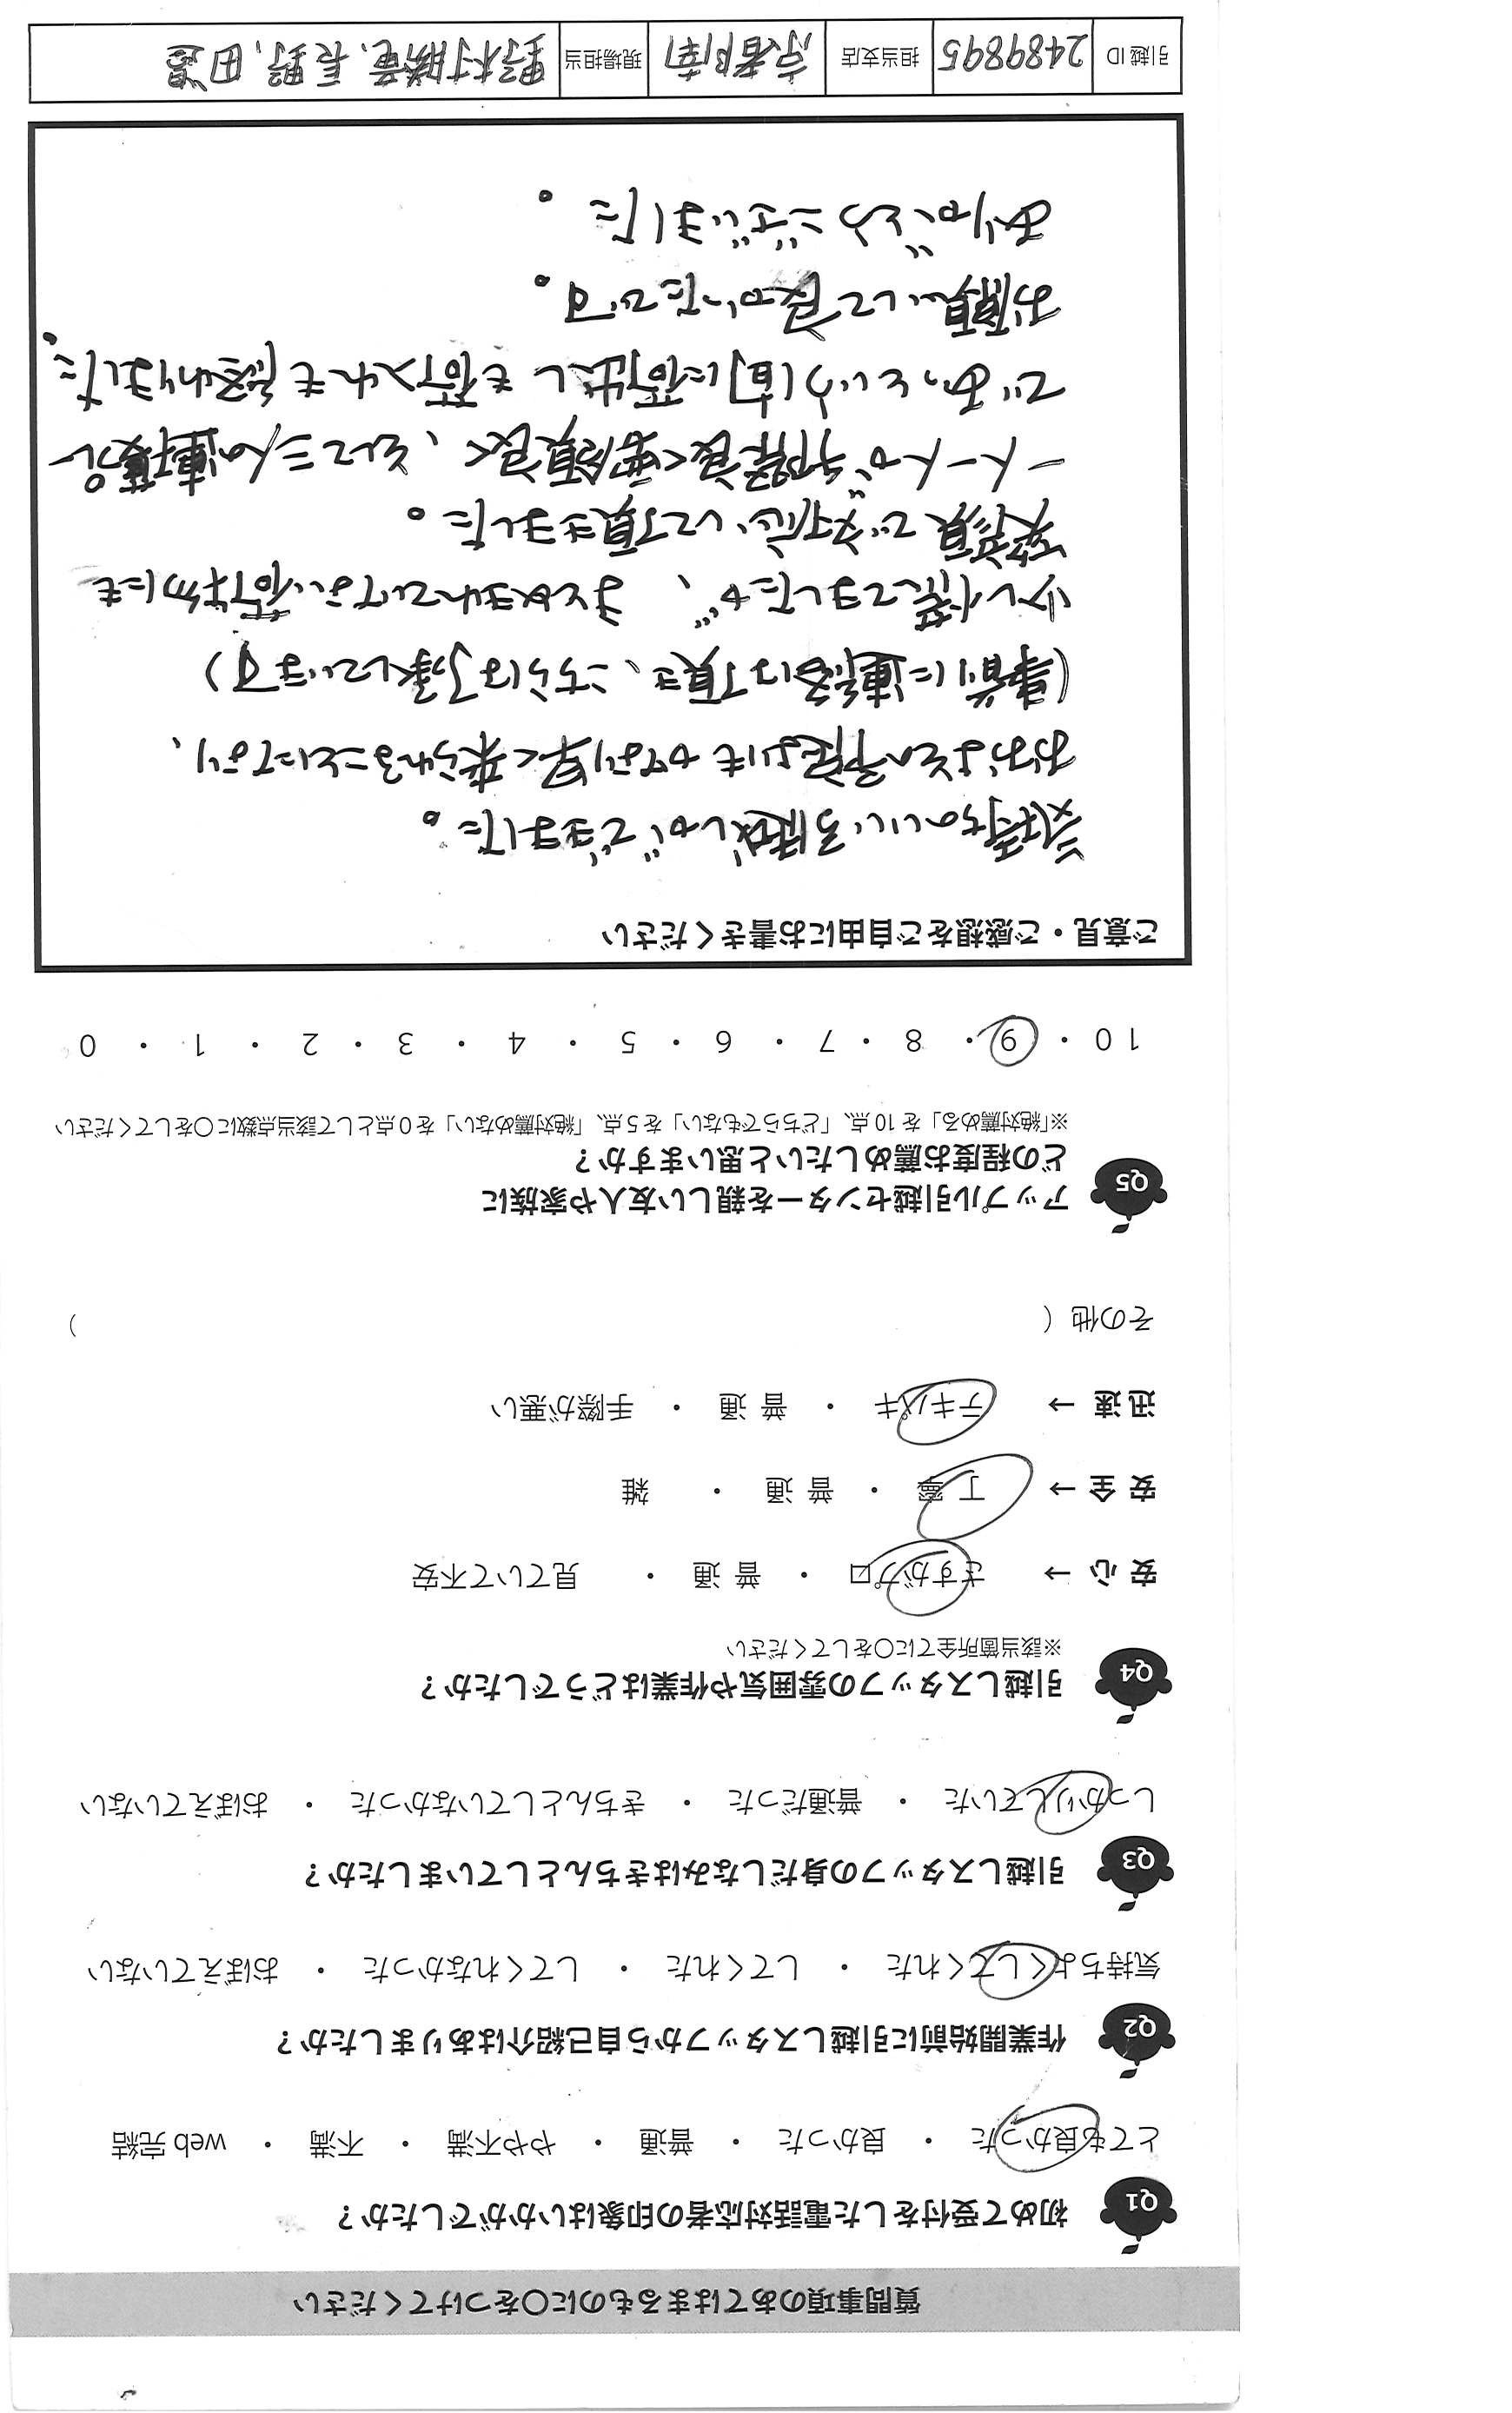 質問事項のあてはまるものに○をつけてください
Q1 初めて受付をした電話対応者の印象はいかがでしたか?
とても良かった ・ 良かった ・ 普通 ・ やや不満 ・ 不満 ・ web 完結
Q2 作業開始前に引越しスタッフから自己紹介はありましたか?
気持ちよくしてくれた ・ してくれた ・ してくれなかった ・ おぼえていない
Q3 引越しスタッフの身だしなみはきちんとしていましたか?
しっかりしていた ・ 普通だった ・ きちんとしていなかった ・ おぼえていない
Q4 引越しスタッフの雰囲気や作業はどうでしたか?
※該当箇所全てに○をしてください
安 心 → さすがプロ ・ 普 通 ・ 見ていて不安
安 全 → 丁 寧 ・ 普 通 ・ 雑
迅 速 → テキパキ ・ 普 通 ・ 手際が悪い
その他 ( )
Q5 アップル引越センターを親しい友人や家族に
どの程度お薦めしたいと思いますか?
※「絶対薦める」を 10 点、「どちらでもない」を 5 点、「絶対薦めない」を 0 点として該当点数に○をしてください
10 ・ 9 ・ 8 ・ 7 ・ 6 ・ 5 ・ 4 ・ 3 ・ 2 ・ 1 ・ 0
ご意見・ご感想をご自由にお書きください
気持ちのいい引越しができました。
おおよその予定よりもかなり早く来られることになり、
(事前に連絡は頂き、こちらは了承しています)
少し慌てましたが、まとめきれてない荷物にも
笑顔で対応して頂きました。
一人一人が手際良く要領良く、そして三人の連携プレー
であっという間に荷出しも荷入れも終わりました。
お願いして良かったです。
ありがとうございました。
引越 ID 2489895 担当支店 京都南 現場担当 野村勝竜、長野、田邉